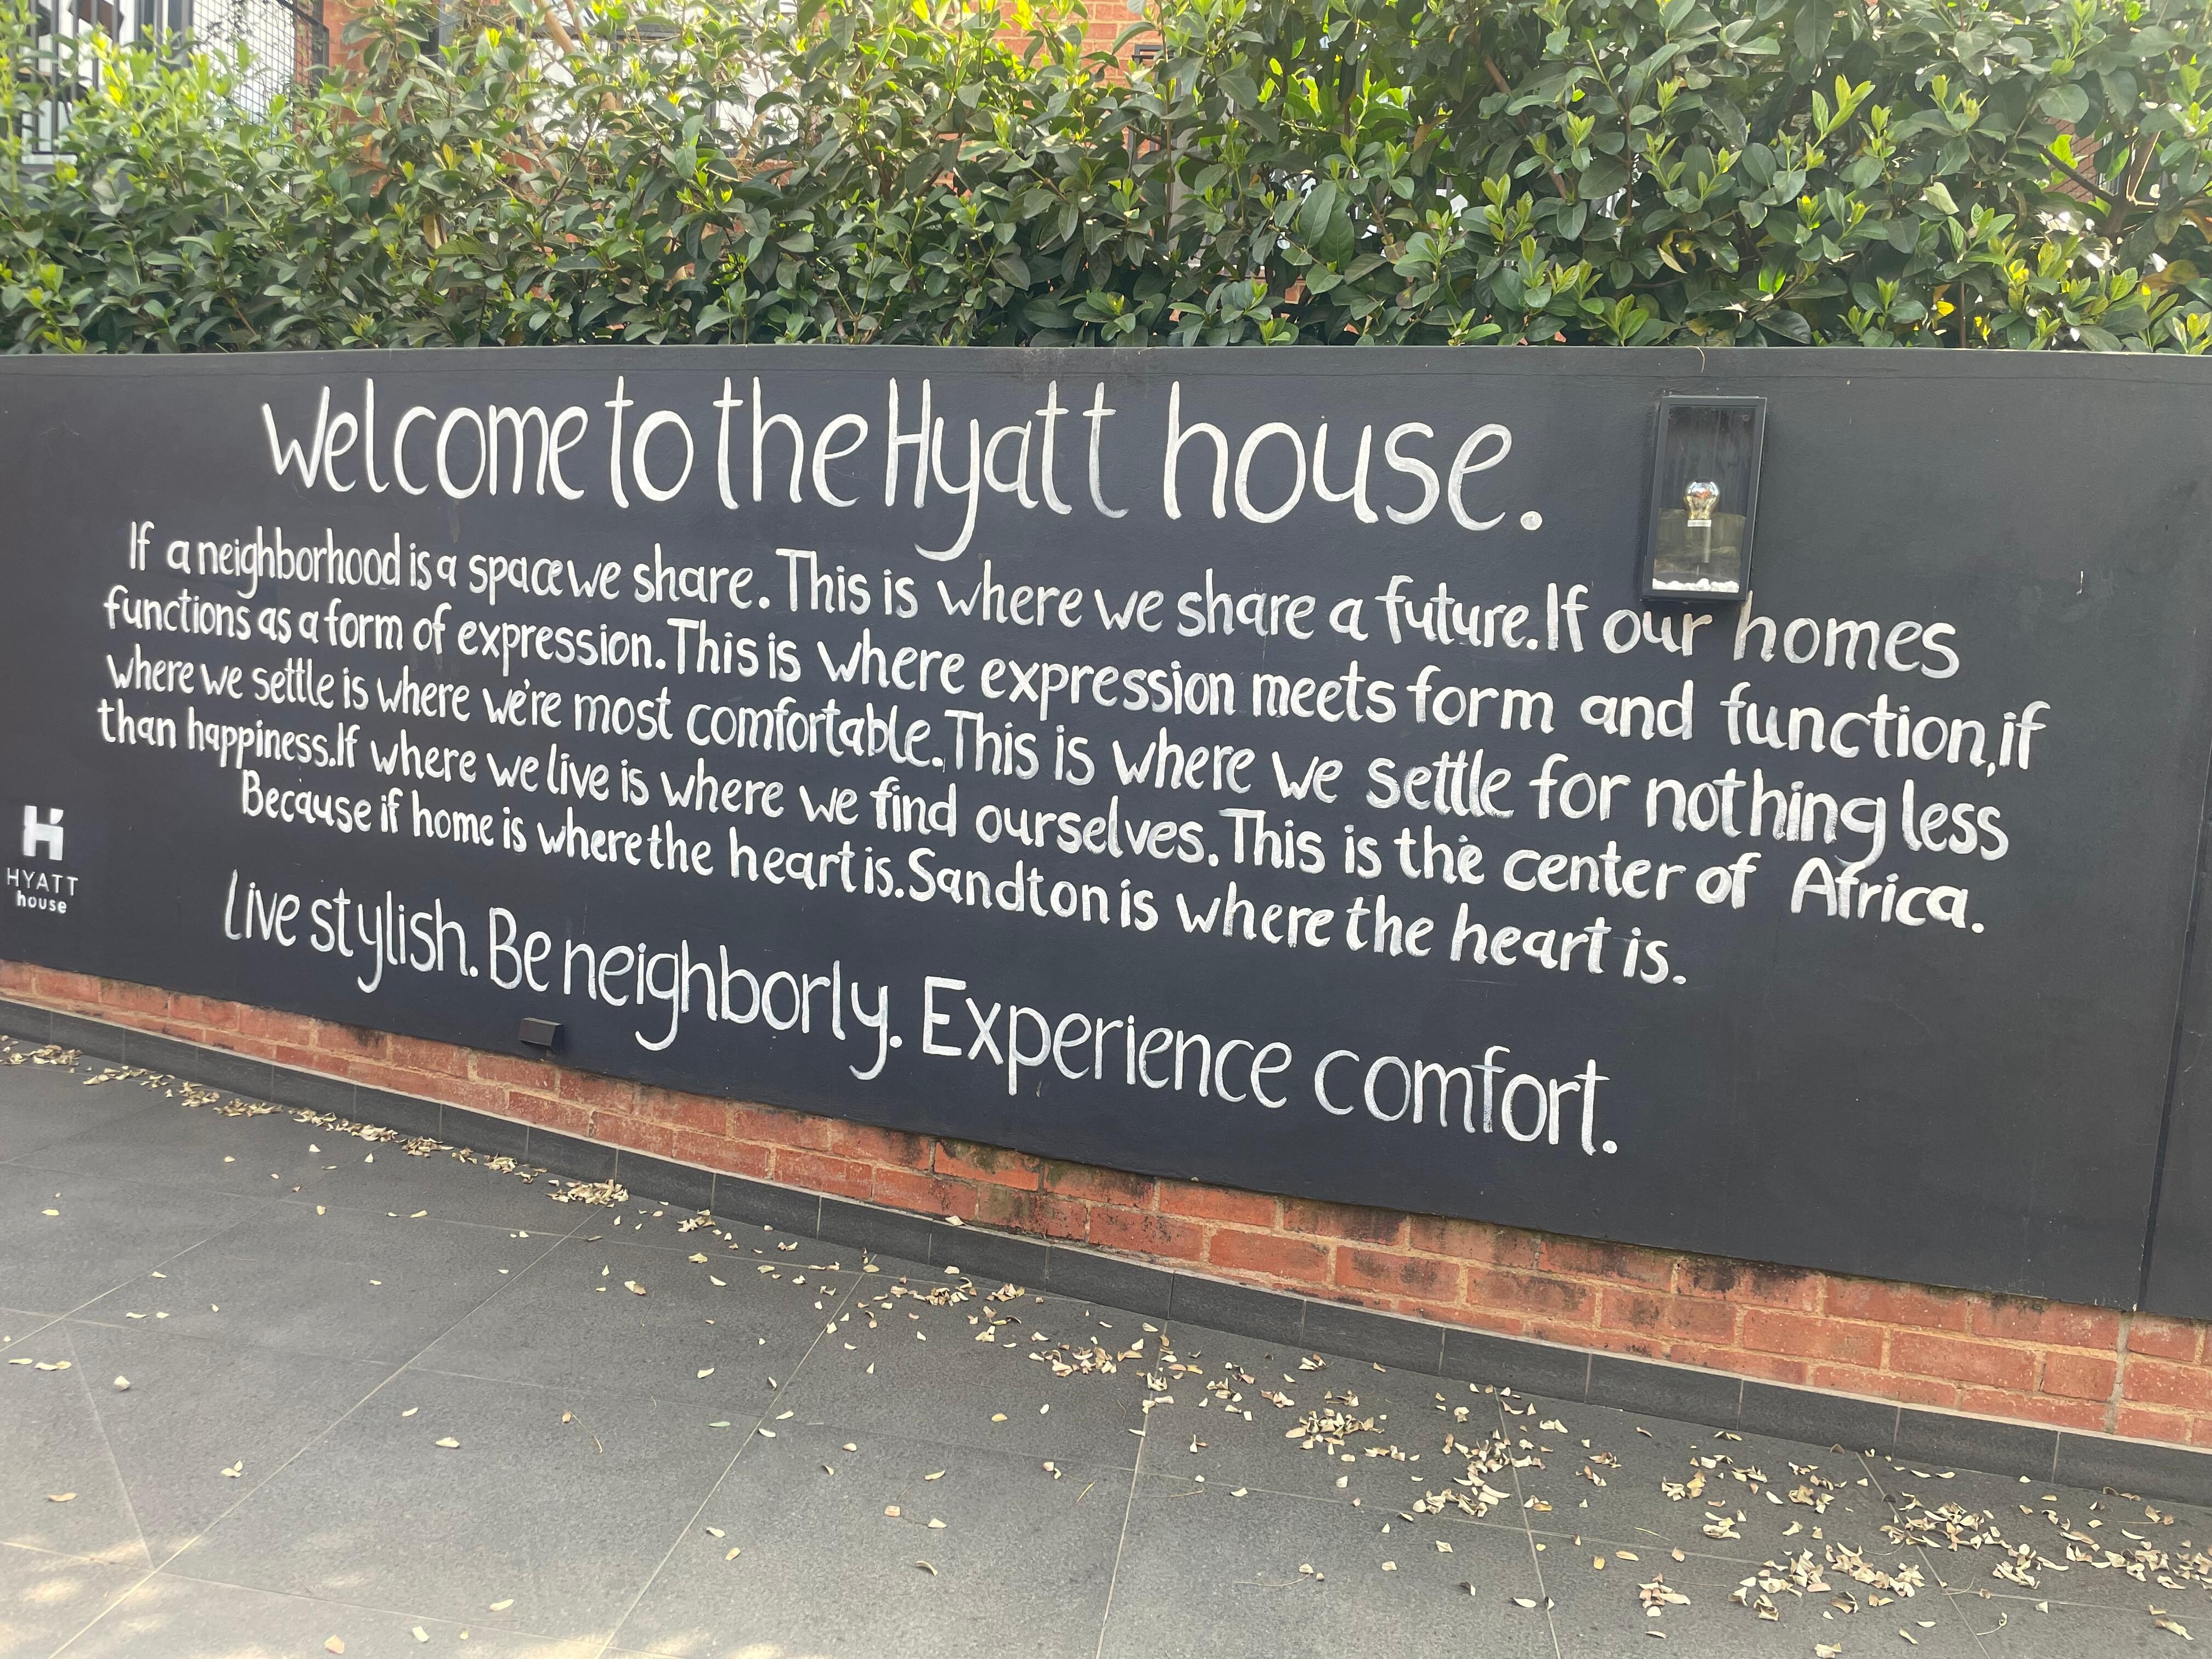 Welcome to the Hyatt house.
If a neighborhood is a space we share. This is where we share a future. If our homes
functions as a form of expression. This is where expression meets form and function, if
where we settle is where we're most comfortable. This is where we settle for nothing less
than happiness. If where we live is where we find ourselves. This is the center of Africa.
Because if home is where the heart is. Sandton is where the heart is.
Live stylish. Be neighborly. Experience comfort.
H
HYATT
house